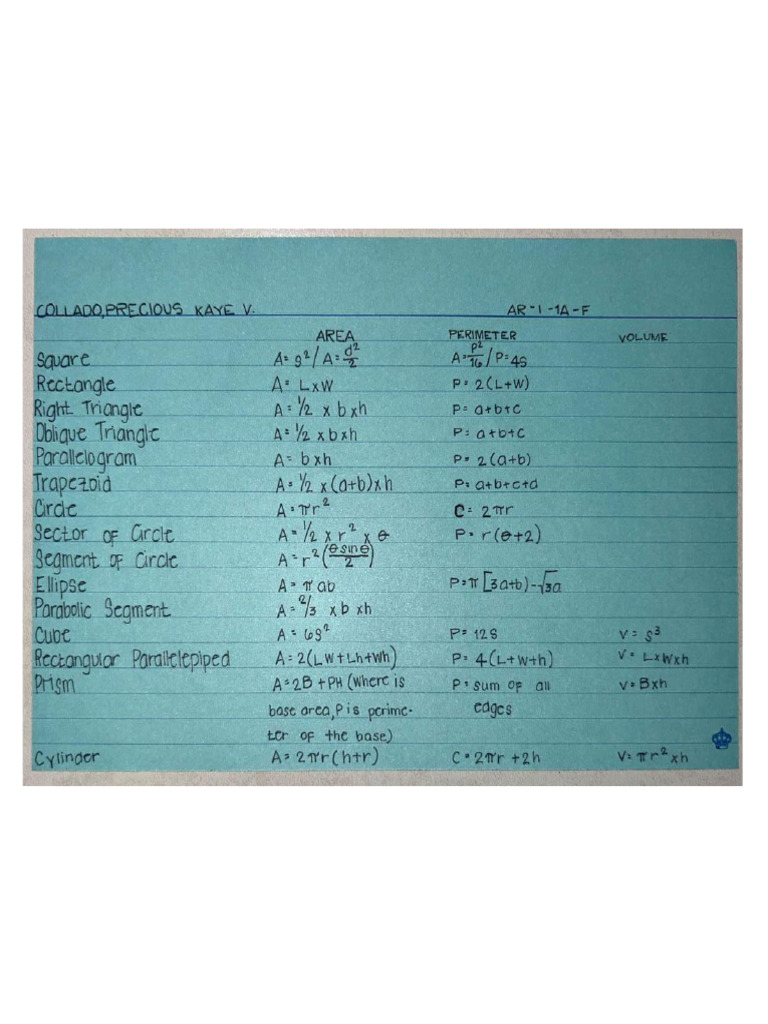 COLLADO, PRECIOUS KAYE V. AR-1-1A-F
AREA PERIMETER VOLUME
Square A= s²/A= d²/2 A= P²/16 / P= 4s
Rectangle A= LxW P= 2(L+W)
Right Triangle A= 1/2 x b x h P= a+b+c
Oblique Triangle A= 1/2 x b x h P= a+b+c
Parallelogram A= b x h P= 2(a+b)
Trapezoid A= 1/2 x (a+b) x h P= a+b+c+d
Circle A= πr² C= 2πr
Sector of Circle A= 1/2 x r² x θ P= r(θ+2)
Segment of Circle A= r²(θsinθ/2)
Ellipse A= πab P=π[3a+b)-√3a
Parabolic Segment A= 2/3 x b x h
Cube A= 6s² P= 12s V= s³
Rectangular Parallelepiped A= 2(LW+Lh+Wh) P= 4(L+W+h) V= LxWxh
Prism A=2B+PH (where is P= sum of all V= Bxh
base area, P is perime- edges
ter of the base)
Cylinder A= 2πr(h+r) C= 2πr +2h V= πr² x h